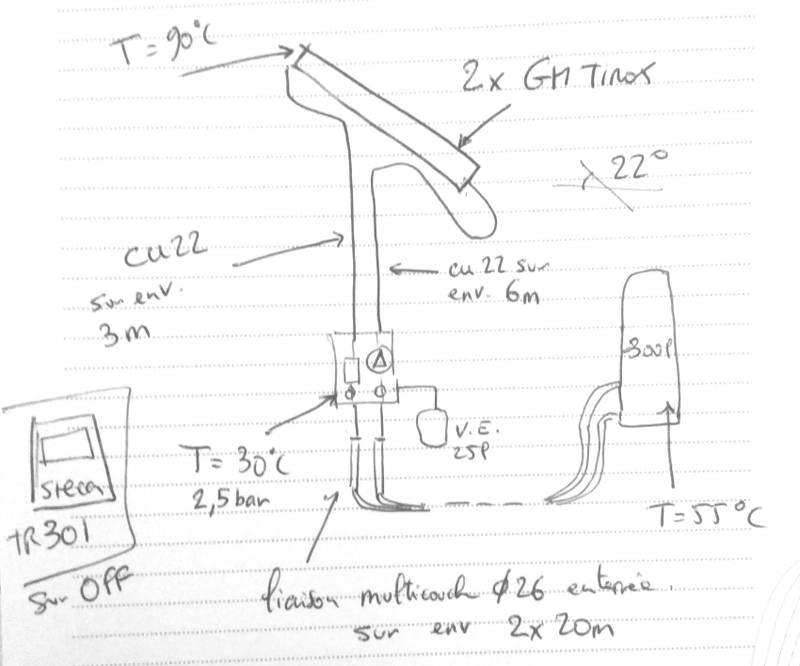 T = 90°C
2x GH Tinox
22°
cu 22
sur env.
3m
cu 22 sur
env. 6m
300l
V.E.
25l
T = 30°C
2,5 bar
Steca
TR301
sur OFF
T = 55°C
liaison multicouch ϕ26 enterrée.
sur env 2x 20m